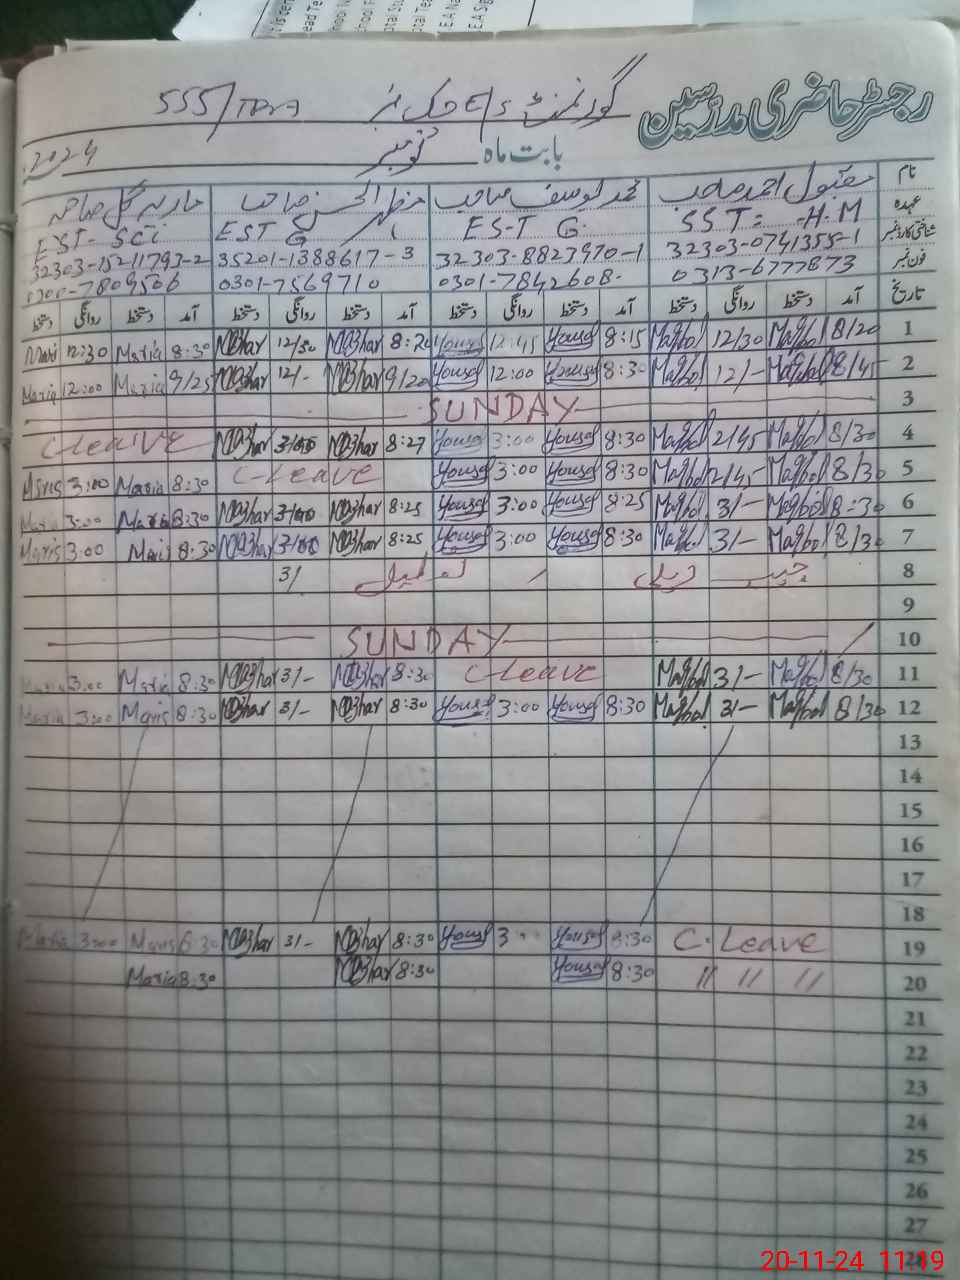 رجسٹر حاضری مدرسین
گورنمنٹ E/S چک نمبر 555/TDA
بابت ماہ نومبر 2024
نام مقبول احمد صاحب محمد یوسف صاحب مظہر الحسن صاحب ماریہ گل صاحبہ
عہدہ SST= H.M ES-T G EST G EST- SCi
شناختی کارڈ نمبر 32303-0741355-1 32303-8823970-1 35201-1388617-3 32303-15211793-2
فون نمبر 0313-6777873 0301-7842608 0301-7569710 0300-7809506
تاریخ آمد دستخط روانگی دستخط آمد دستخط روانگی دستخط آمد دستخط روانگی دستخط آمد دستخط روانگی دستخط
1 8/20 Maqbol 12/30 Maqbol 8:15 Yousaf 12:45 Yousaf 8:20 Mazhar 12/30 Mazhar 8:30 Maria 12:30
2 8/45 Maqbol 12/- Maqbol 8:30 Yousaf 12:00 Yousaf 9/20 Mazhar 12/- Mazhar 9/25 Maria 12:00 Maria
3 SUNDAY
4 8/30 Maqbol 2/45 Maqbol 8:30 Yousaf 3:00 Yousaf 8:27 Mazhar Mazhar C leaive
5 8/30 Maqbol 2/45 Maqbol 8:30 Yousaf 3:00 Yousaf C-Leave 8:30 Maria 3:00
6 8:30 Maqbol 3/- Maqbol 8:25 Yousaf 3:00 Yousaf 8:25 Mazhar Mazhar 8:30 Maria 3:00 Maria
7 8/30 Maqbol 3/- Maqbol 8:30 Yousaf 3:00 Yousaf 8:25 Mazhar Mazhar 8:30 3:00
8 تعطیل 3/
9
10 SUNDAY
11 8/30 Maqbol 3/- Maqbol C Leave 8:30 Mazhar 3/- Mazhar 8:30 Maria 3:00 Maria
12 8/30 Maqbol 3/- Maqbol 8:30 Yousaf 3:00 Yousaf 8:30 Mazhar 3/- Mazhar 8:30 Maria 3:00 Maria
13
14
15
16
17
18
19 C. Leave 8:30 Yousaf 3 Yousaf 8:30 Mazhar 3/- Mazhar 8:30 Maria 3:00 Maria
20 // // // 8:30 Yousaf 8:30 Mazhar 8:30 Maria
21
22
23
24
25
26
27
28
20-11-24 11:19